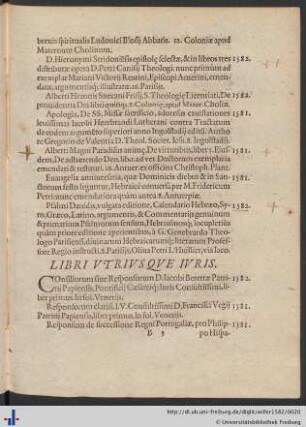 breuis spiritualis Ludouici Blosij Abbatis. 12. Coloniæ apud
Maternum Cholinum.
D. Hieronymi Stridonensis epistolę selectæ, & in libros tres 1582.
distributæ opera D. Petri Canisij Theologi: nunc primùm ad
exemplar Mariani Victorij Reatini, Episcopi Amerini, emen-
datæ, argumentisq; illustratæ. 12. Parisijs.
Alberti Hunnei Snecani Frisij, S. Theologię Licentiati, De 1582.
prouidentia Dei libri quinq;. 8. Coloniæ, apud Mater. Cholin.
Apologia, De SS. Missæ sacrificio, aduersus cauillationes 1581.
Iacobi Herbrandi Lutherani contra Tractatum
de eodem argumẽto superiori anno Ingolstadij editũ. Autho
re Gregorio de Valentia D. Theol. Societ. Iesu. 8. Ingolstadij.
Alberti Magni Paradisus animæ, De virtutibus, liber 1. Eius dem,
De adhærendo Deo, liber, ad vet. Doctorum exemplaria
emendati & restituti. 12. Antuer. ex officina Christoph. Plan.
Euangelia anniuersaria, quæ Dominicis diebus & in San-
ctorum festis leguntur, Hebraicè conuersa per M. Fridericum
Petri: nunc emendatiora quàm antea. 8. Antuerpiæ.
Psalmi Dauidis, vulgata editione, Calendario Hebræo, Sy- 1582.
ro, Græco, Latino, argumentis, & Commentarijs genuinum
& primarium Psalmorum sensum, Hebraismosq; locupletiùs
quàm priore editione aperientibus, à G. Genebrardo Theolo-
go Parisiensi, diuinarum Hebraicarumq; literarum Profes-
sore Regio instructi. 8. Parisijs, Olina Petri L'Huillier, via Iaco.
LIBRI VTRIVSQVE IVRIS.
COnsiliorum siue Responsorum D. Iacobi Beretæ Patri- 1582.
tij Papiensis, Pontificij Cæsareiq; Iuris Consultissimi, li-
ber primus. In fol. Venetijs.
Responsorum clariss. I. V. Consultissimi D. Francisci Vegij 1581.
Patritij Papiensis, liber primus. In fol. Venetijs.
Responsum de successione Regni Portugaliæ, pro Philip- 1581.
B 3 po Hispa-
http://dl.ub.uni-freiburg.de/diglit/willer1582/0020
© Universitätsbibliothek Freiburg